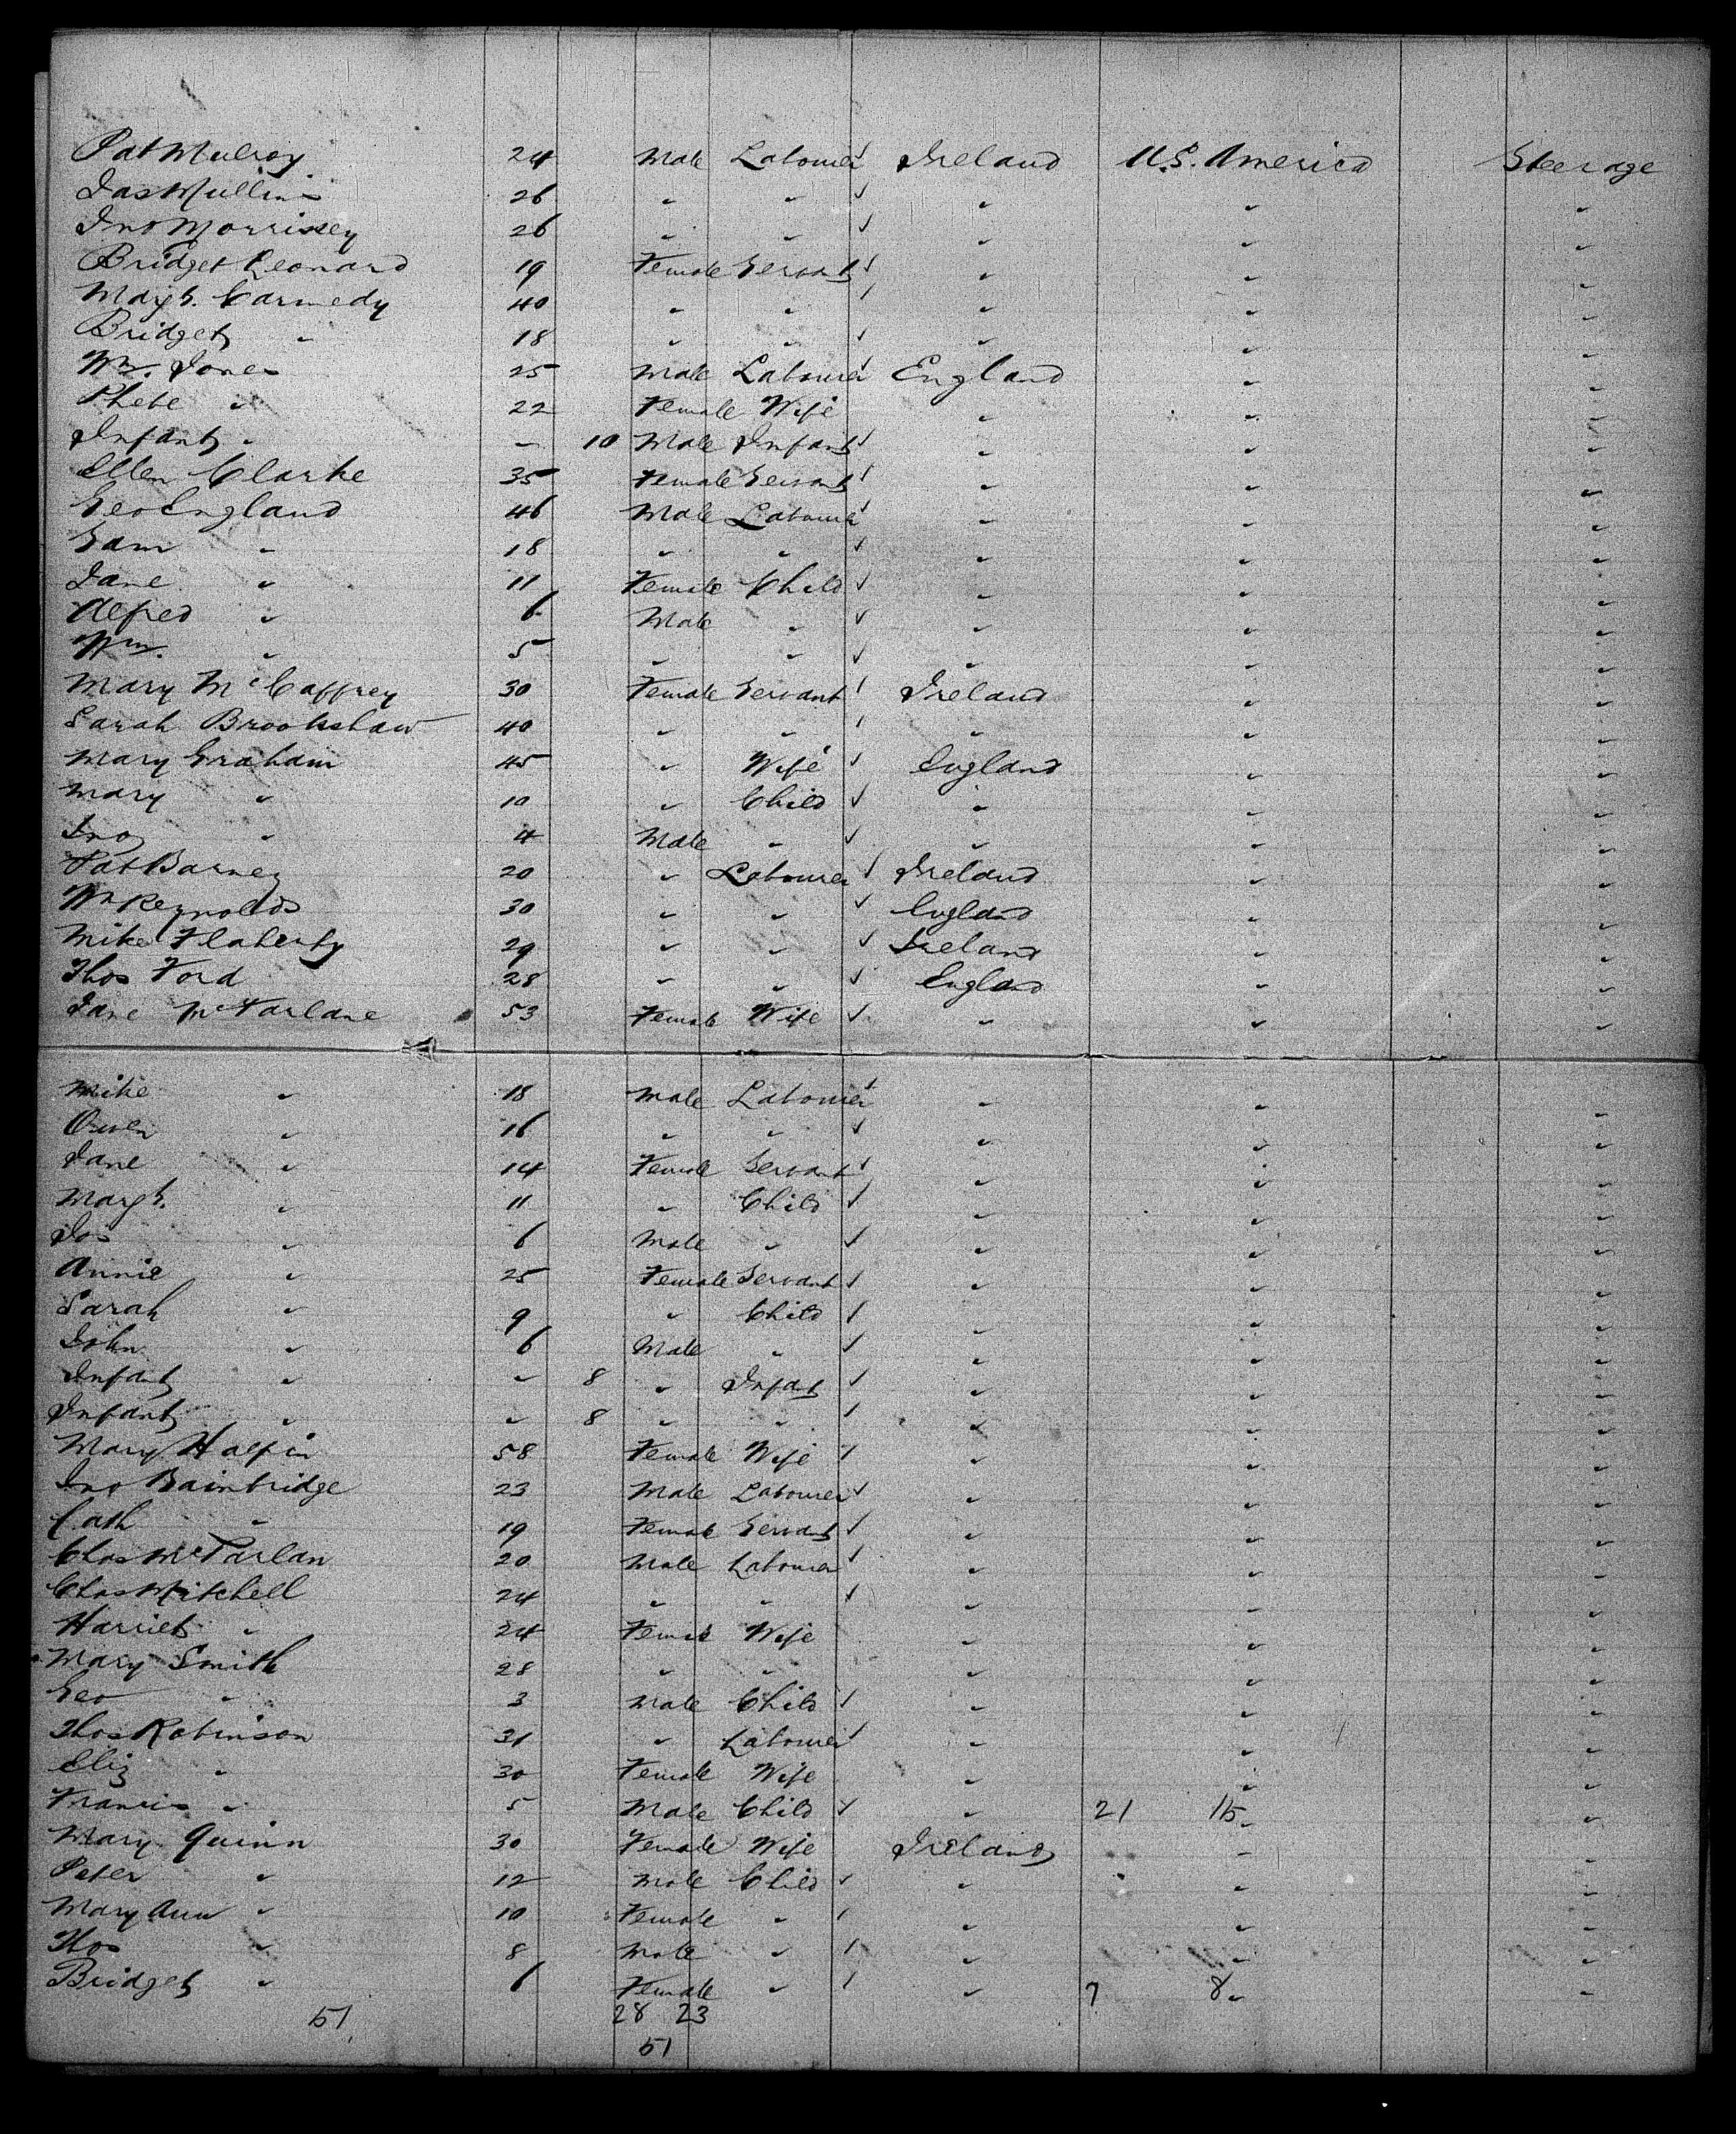 Pat Mulroy 24 Male Labourer Ireland U.S. America Steerage
Jas Mullins 26 " " " " "
Jno Morrissey 26 " " " " "
Bridget Leonard 19 Female Servant " " "
Margt. Carmedy 40 " " " " "
Bridget " 18 " " " " "
Wm. Jones 25 Male Labourer England " "
Phebe " 22 Female Wife " " "
Infant " " 10 Male Infant " " "
Ellen Clarke 35 Female Servant " " "
Geo England 46 Male Labourer " " "
Sam " 18 " " " " "
Jane " 11 Female Child " " "
Alfred " 6 Male " " " "
Wm. " 5 " " " " "
Mary McCaffrey 30 Female Servant Ireland " "
Sarah Brookshaw 40 " " " " "
Mary Graham 45 " Wife England " "
Mary " 10 " Child " " "
Jno " 4 Male " " " "
Pat Barney 20 " Labourer Ireland " "
Wm Reynolds 30 " " England " "
Mike Flaherty 29 " " Ireland " "
Thos Ford 28 " " England " "
Jane McFarlane 53 Female Wife " " "
Mike " 18 Male Labourer " " "
Owen " 16 " " " " "
Jane " 14 Female Servant " " "
Margt. " 11 " Child " " "
Jos " 6 Male " " " "
Annie " 25 Female Servant " " "
Sarah " 9 " Child " " "
John " 6 Male " " " "
Infant " " 8 " Infant " " "
Infant " " 8 " " " " "
Mary Halpin 58 Female Wife " " "
Jno Bainbridge 23 Male Labourer " " "
Cath " 19 Female Servant " " "
Chas McParlan 20 Male Labourer " " "
Chas Mitchell 24 " " " " "
Harriet " 24 Female Wife " " "
Mary Smith 28 " " " " "
Geo " 3 Male Child " " "
Thos Robinson 31 " Labourer " " "
Eliz " 30 Female Wife " " "
Francis " 5 Male Child " 21 15 " "
Mary Quinn 30 Female Wife Ireland " "
Peter " 12 Male Child " " "
Mary Ann " 10 Female " " " "
Thos " 8 Male " " " "
Bridget " 6 Female " " 7 8 " "
51 28 23
51